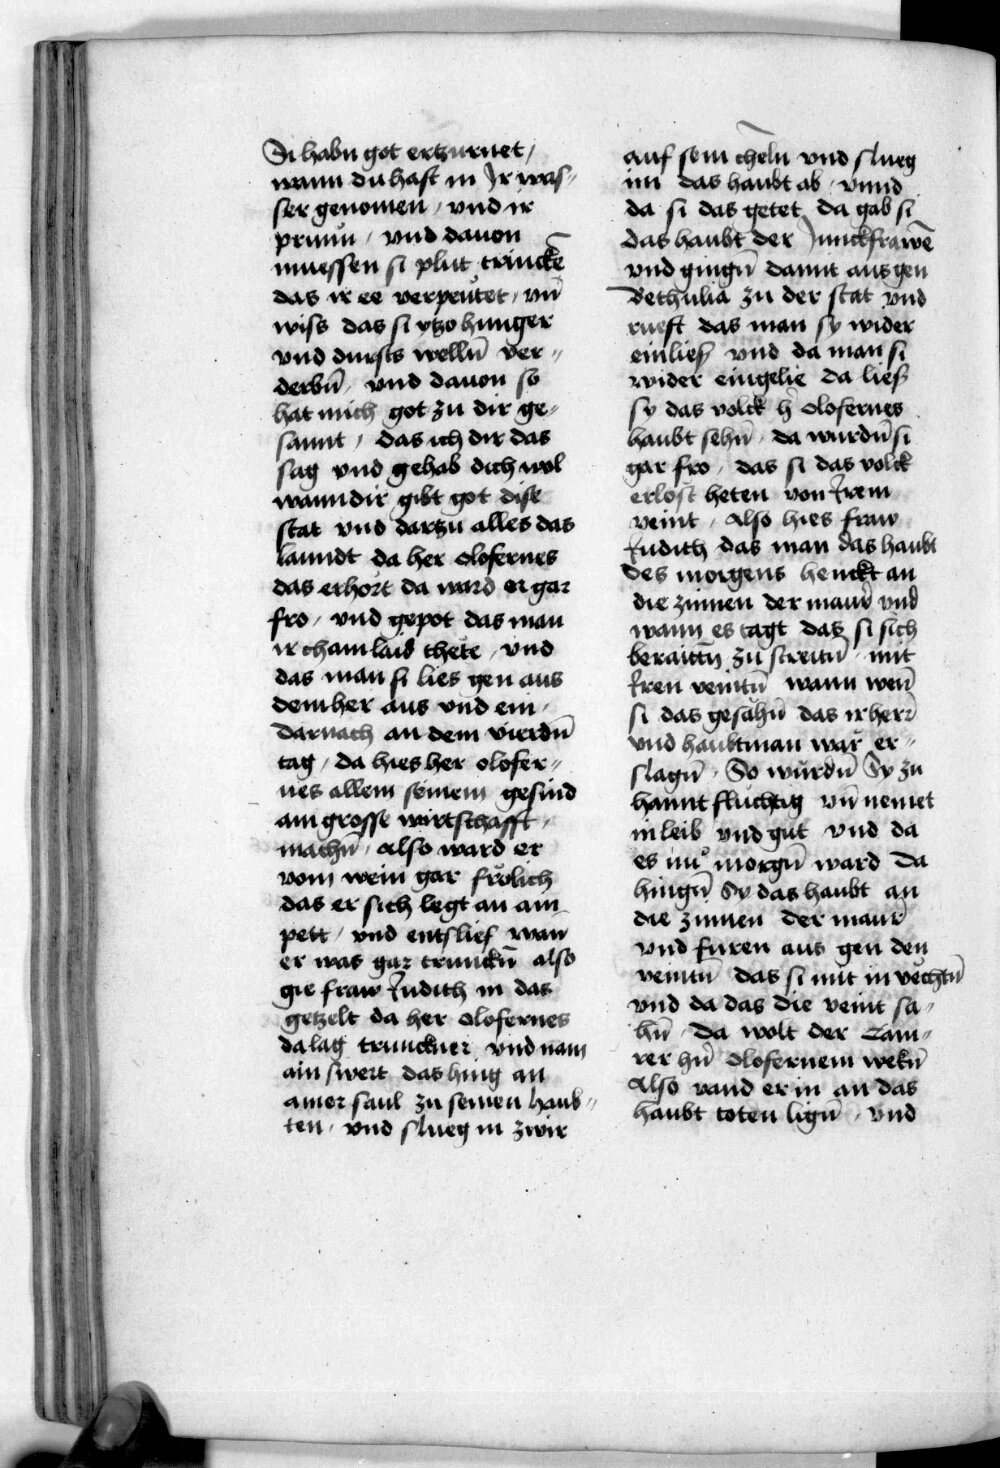 Si habn got ertzurnet /
wann du hast in Ir was⸗
ser genomen / vnd ir
prunn / vnd dauon
muessen si plut trincke͞
das ir ee verpeutet / vn͞
wiss das si ytzo hunger
vnd dursts wellu͞ ver⸗
derbn͞ / vnd dauon so
hat mich got zu dir ge⸗
sannt / das ich dir das
sag vnd gehab dich wol
wann dir gibt got dise
stat vnd dartzu alles das
lanndt da her olofernes
das erhört da ward er gar
fro / vnd gepot das man
ir chain laid thete / vnd
das man si lies gen aus
dem her aus vnd ein /
darnach an dem vierdn͞
tag / da hies her olofer⸗
nes allem seinem gesind
ain grosse wirtschafft /
machn͞ / also ward er
vom wein gar frölich
das er sich legt an ain
pett / vnd entslief wan
er was gar trunckn͞ also
gie fraw Judith in das
getzelt da her olofernes
da lag trunckner / vnd nam
ain swert das hing an
ainer saul zu seinen haub⸗
ten / vnd slueg in zwir
auf sein cheln vnd slueg
im das haubt ab / vnnd
da si das getet da gab si
das haubt der Junckfrawe͞
vnd gingn͞ damit aus gen
Bethulia zu der stat vnd
rueft das man sy wider
einlies vnd da man si
wider eingelie da lies
sy das volck h͞ olofernes
haubt sehn͞ / da wurdn͞ si
gar fro / das si das volck
erlost heten von Irem
veint / also hies fraw
Judith das man das haubt
des morgens henckt an
die zinnen der maur vnd
wann es tagt das si sich
beraittn͞ zu streitn͞ / mit
Iren veintn͞ wann wen͞
si das gesähn͞ das ir herr
vnd haubtman wär er⸗
slagn͞ / So wurdn͞ Sy zu
hannt fluchtig vn͞ nemet
in leib vnd gut vnd da
es nu morgn͞ ward da
hingn͞ Sy das haubt an
die zinnen der maur
vnd furen aus gen den
veintn͞ das si mit in vechtn͞
vnd da das die veint sa⸗
hn͞ / da wolt der Cam⸗
rer hn͞ olofernem wekn͞
also vand er in an das
haubt toten lign͞ / vnd